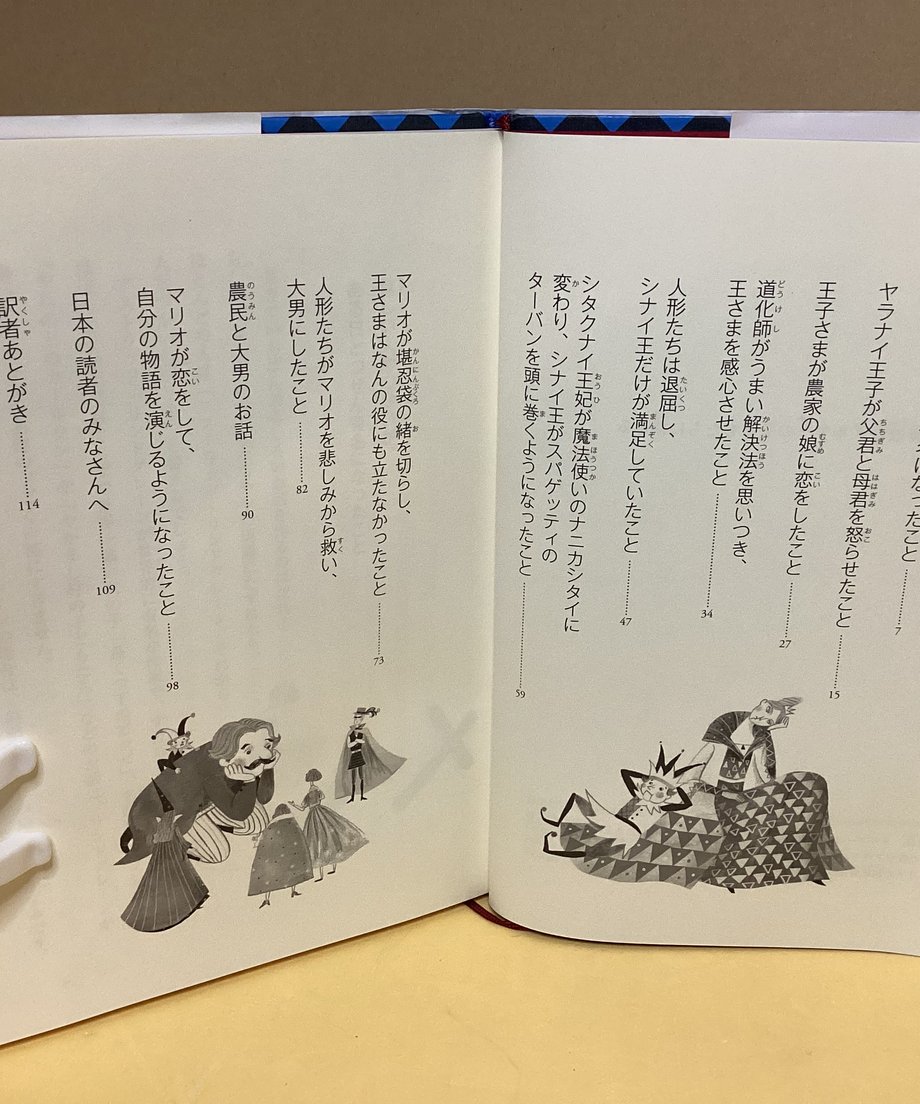 になったこと………7
ヤラナイ王子が父君と母君を怒らせたこと………15
王子さまが農家の娘に恋をしたこと………27
道化師がうまい解決法を思いつき、
王さまを感心させたこと………34
人形たちは退屈し、
シナイ王だけが満足していたこと………47
シタクナイ王妃が魔法使いのナニカシタイに
変わり、シナイ王がスパゲッティの
ターバンを頭に巻くようになったこと………59
マリオが堪忍袋の緒を切らし、
王さまはなんの役にも立たなかったこと………73
人形たちがマリオを悲しみから救い、
大男にしたこと………82
農民と大男のお話………90
マリオが恋をして、
自分の物語を演じるようになったこと………98
日本の読者のみなさんへ………109
訳者あとがき………114